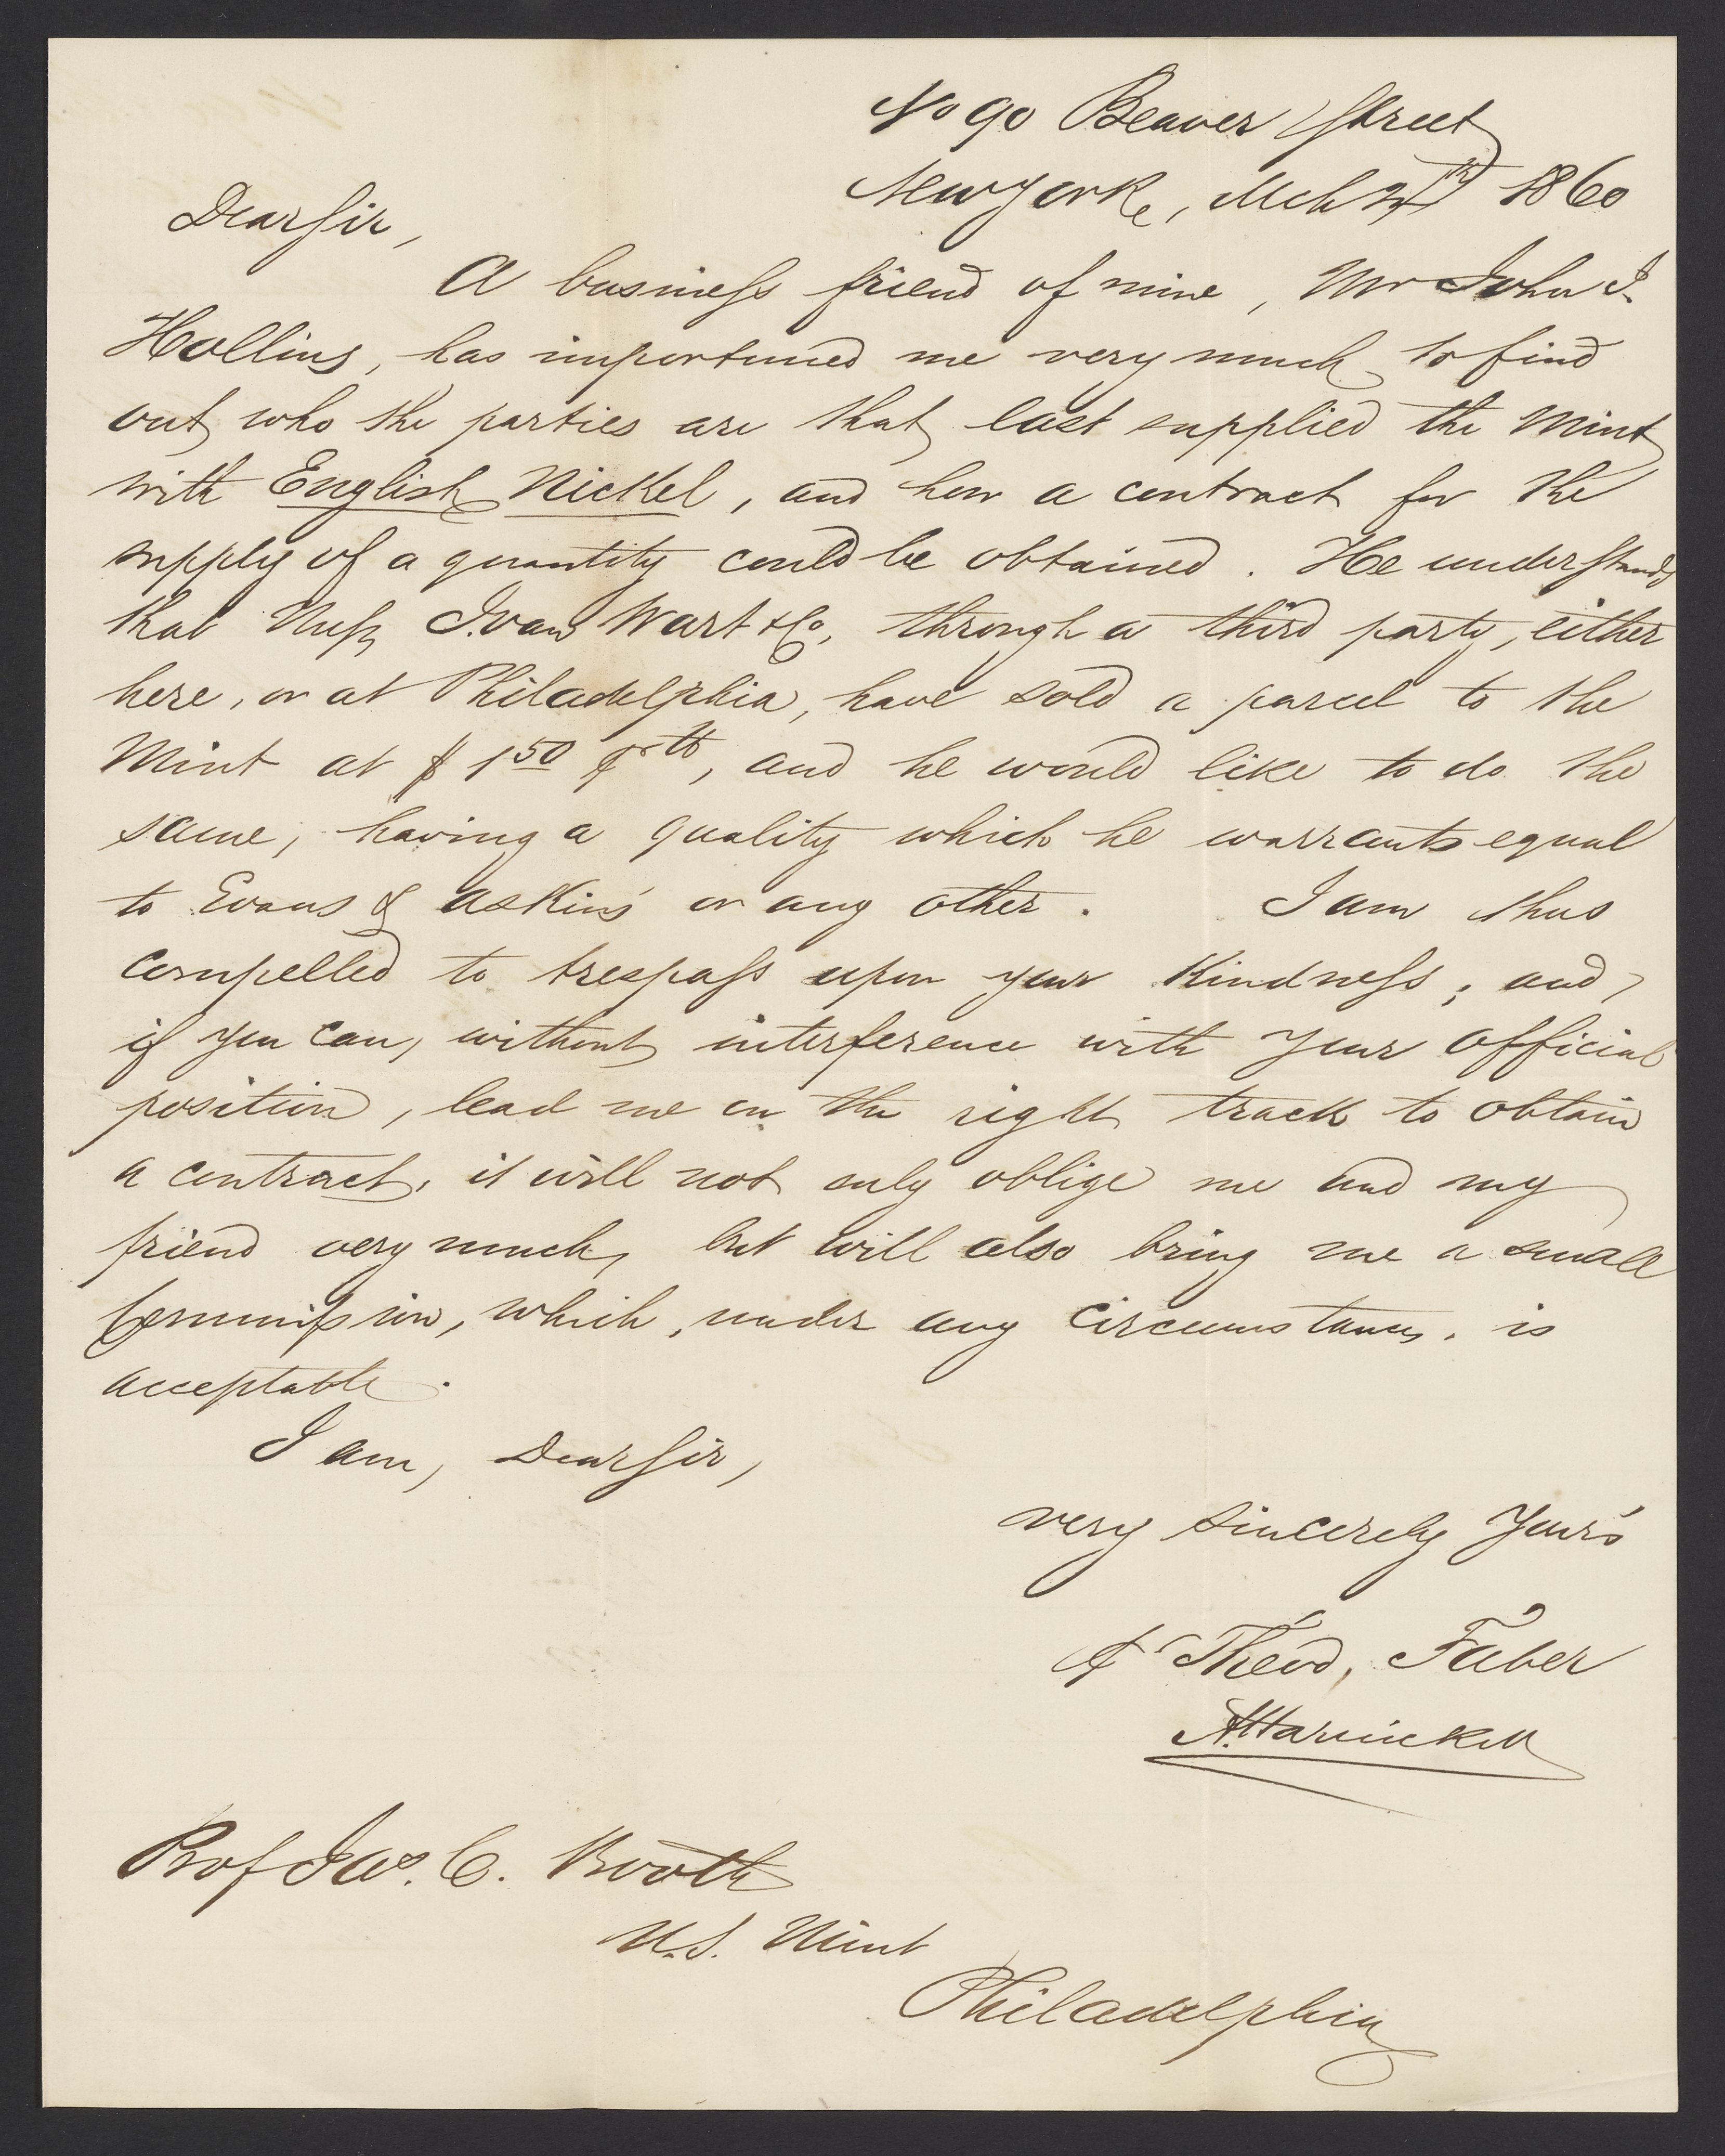 No 90 Beaver Street
New York, Mch 1860
Dear Sir,
A business friend of mine, Mr John I.
Hollins, has importuned me very much to find
out who the parties are that last supplied the Mint
with English Nickel, and how a contract for the
supply of a quantity could be obtained. He understands
that Mess J. van Wart & Co, through a third party, either
here, or at Philadelphia, have sold a parcel to the
Mint at $ 1 50 ℔, and he would like to do the
same, having a quality which he warrants equal
to Evans & Askins' or any other. I am thus
compelled to trespass upon your kindness, and,
if you can, without interference with your official
position, lead me on the right track to obtain
a contract, it will not only oblige me and my
friend very much, but will also bring me a small
Commission, which, under any circumstances, is
acceptable.
I am, Dear Sir,
very sincerely Your's
Theod, Faber
Prof Jas. C. Booth
U.S. Mint
Philadelphia